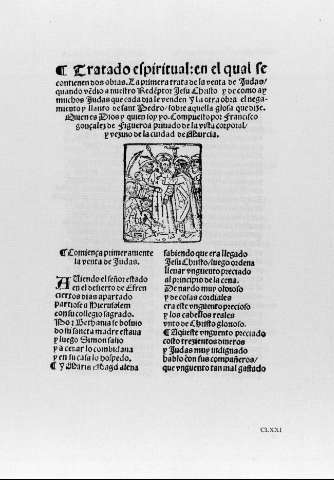 ¶ Tratado espiritual: en el qual se
contienen dos obras. La primera trata de la venta de Judas/
quando vẽdio a nuestro Redẽptor Jesu Christo y de como ay
muchos Judas que cada dia le venden Y la otra obra el nega-
miento y llanto de sant Pedro/ sobre aquella glosa que dize.
Quien es Dios y quien soy yo. Compuesto por Francisco
gonçalez de Figueroa priuado de la vista corporal/
y vezino de la ciudad de Murcia.
¶ Comiença primeramente
la venta de Judas.
Auiendo el señor estado
en el desierto de Efren
ciertos dias apartado
partiose a Hierusalem
con su collegio sagrado.
Por Bethania se boluio
do su sancta madre estaua
y luego Simon salio
y a cenar lo combidaua
y en su casa lo hospedo.
¶ Y Maria Magdalena
sabiendo que era llegado
Jesu Christo/ luego ordena
lleuar vnguento preciado
al principio de la cena.
De nardo muy oloroso
y de cosas cordiales
era este vnguento precioso
y los cabellos reales
vnto de Christo glorioso.
¶ Aqueste vnguento preciado
costo trezientos dineros
y Judas muy indignado
hablo con sus compañeros/
que vnguento tan mal gastado
CLXXI